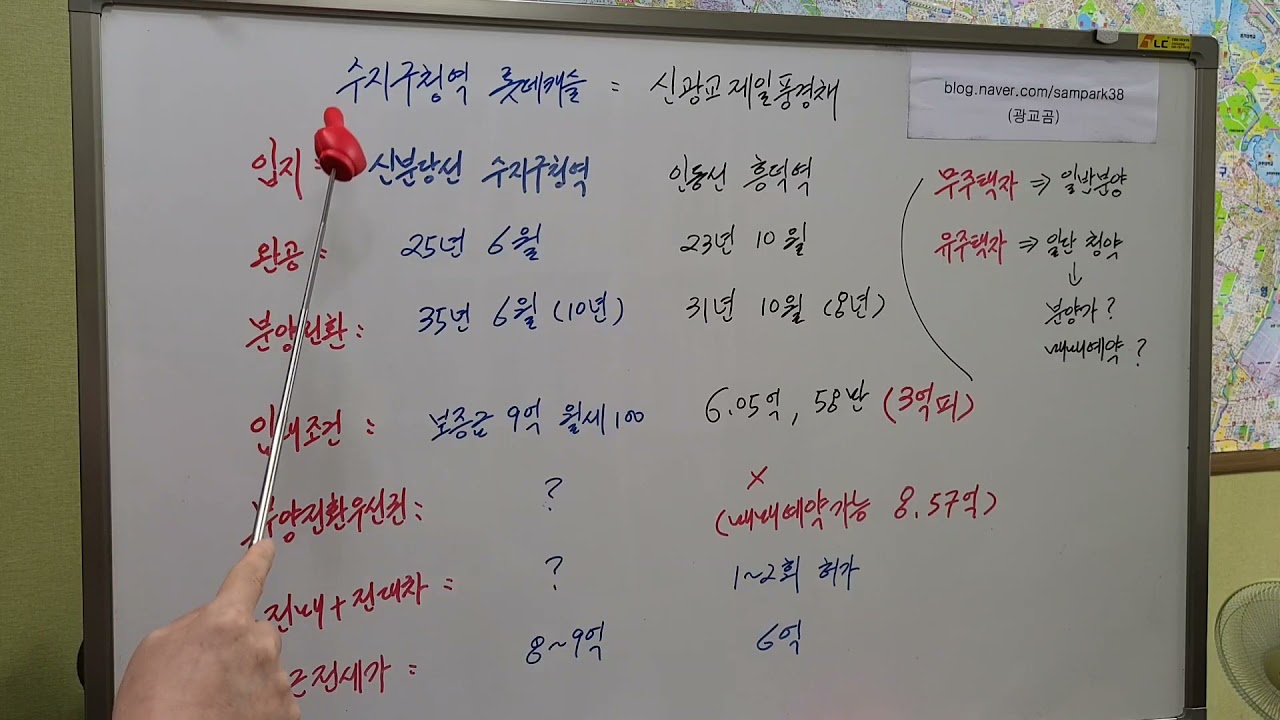 수지구청역 롯데캐슬 = 신광교제일풍경채
입지 : 신분당선 수지구청역 인동선 흥덕역
완공 : 25년 6월 23년 10월
분양전환 : 35년 6월 (10년) 31년 10월 (8년)
임대조건 : 보증금 9억 월세100 6.05억, 58만 (3억피)
분양전환우선권 : ? X
(매매예약가능 8.57억)
전대+전대차 : ? 1~2회 허가
근전세가 : 8~9억 6억
무주택자 ⇒ 일반분양
유주택자 ⇒ 일단 청약
↓
분양가?
매매예약?
blog.naver.com/sampark38
(광교곰)